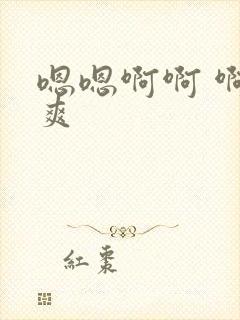 嗯嗯啊啊 啊
爽
紅棗